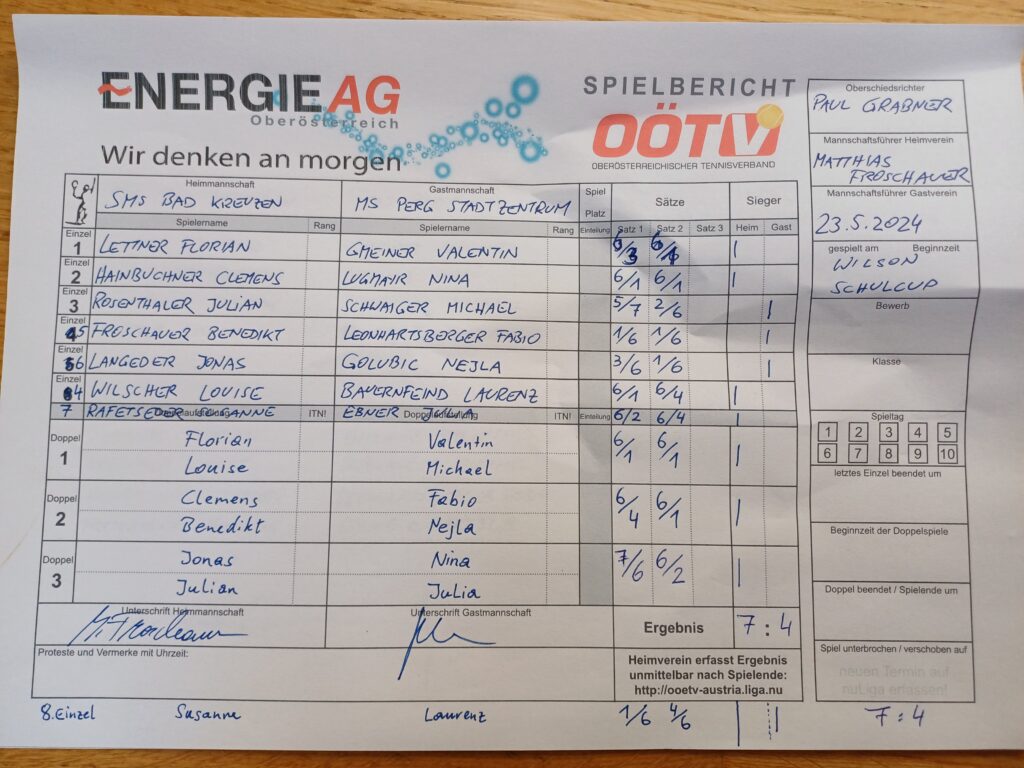 ENERGIE AG
Oberösterreich
Wir denken an morgen
SPIELBERICHT
OÖTV
OBERÖSTERREICHISCHER TENNISVERBAND
Oberschiedsrichter
PAUL GRABNER
Mannschaftsführer Heimverein
MATTHIAS
FRÖSCHAUER
Mannschaftsführer Gastverein
23.5.2024
gespielt am Beginnzeit
WILSON
SCHULCUP
Bewerb
Klasse
Spieltag
1 2 3 4 5
6 7 8 9 10
letztes Einzel beendet um
Beginnzeit der Doppelspiele
Doppel beendet / Spielende um
Spiel unterbrochen / verschoben auf
neuen Termin auf
nuLiga erfassen!
7 : 4
Heimmannschaft Gastmannschaft Spiel Sätze Sieger
SMS BAD KREUZEN MS PERG STADTZENTRUM Platz
Spielername Rang Spielername Rang Einteilung Satz 1 Satz 2 Satz 3 Heim Gast
Einzel 1 LETTNER FLORIAN GMEINER VALENTIN 6/3 |
Einzel 2 HAINBUCHNER CLEMENS LUGMAYR NINA 6/1 6/1 |
Einzel 3 ROSENTHALER JULIAN SCHWAIGER MICHAEL 5/7 2/6 |
Einzel 5 FRÖSCHAUER BENEDIKT LEONHARTSBERGER FABIO 1/6 1/6 |
Einzel 6 LANGEDER JONAS GOLUBIC NEJLA 3/6 1/6 |
Einzel 4 WILSCHER LOUISE BAUERNFEIND LAURENZ 6/1 6/4 |
7 RAFETSEDER SUSANNE ITN! EBNER JULIA ITN! Einteilung 6/2 6/4 |
Doppel 1 Florian Valentin 6/1 6/1 |
Louise Michael
Doppel 2 Clemens Fabio 6/4 6/1 |
Benedikt Nejla
Doppel 3 Jonas Nina 7/6 6/2 |
Julian Julia
Unterschrift Heimmannschaft Unterschrift Gastmannschaft Ergebnis 7 : 4
Proteste und Vermerke mit Uhrzeit:
Heimverein erfasst Ergebnis
unmittelbar nach Spielende:
http://ooetv-austria.liga.nu
8.Einzel Susanne Laurenz 1/6 4/6 |